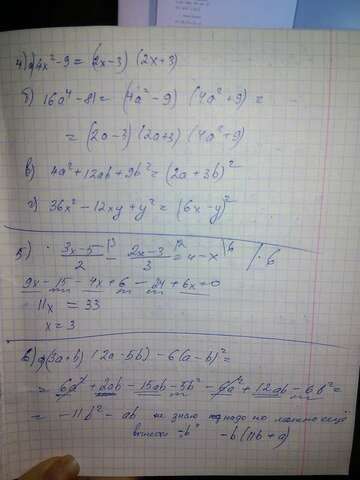 4) а) 4x² - 9 = (2x - 3) (2x + 3)
б) 16a⁴ - 81 = (4a² - 9) (4a² + 9) =
= (2a - 3) (2a + 3) (4a² + 9)
в) 4a² + 12ab + 9b² = (2a + 3b)²
г) 36x² - 12xy + y² = (6x - y)²
5) (3x - 5)/2 |3 - (2x - 3)/3 |2 = 4 - x |6 / · 6
9x - 15 - 4x + 6 - 24 + 6x = 0
11x = 33
x = 3
6) (3a + b) (2a - 5b) - 6(a - b)² =
= 6a² + 2ab - 15ab - 5b² - 6a² + 12ab - 6b² =
= -11b² - ab не знаю надо но можно ещё
вынести -b -b(11b + a)